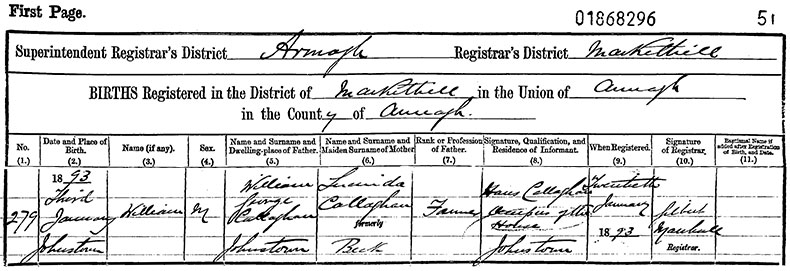 First Page. 01868296 51
Superintendent Registrar's District Armagh Registrar's District Markethill
BIRTHS Registered in the District of Markethill in the Union of Armagh
in the County of Armagh.
No. Date and Place of Birth. Name (if any). Sex. Name and Surname and Dwelling-place of Father. Name and Surname and Maiden Surname of Mother. Rank or Profession of Father. Signature, Qualification, and Residence of Informant. When Registered. Signature of Registrar. Baptismal Name if added after Registration of Birth, and Date.
(1.) (2.) (3.) (4.) (5.) (6.) (7.) (8.) (9.) (10.) (11.)
279 1893 Third January Johnstown William M William George Callaghan Johnstown Lucinda Callaghan formerly Beck Farmer Callaghan Occupier of the House Johnstown Twentieth January 1893 Marshall Registrar.